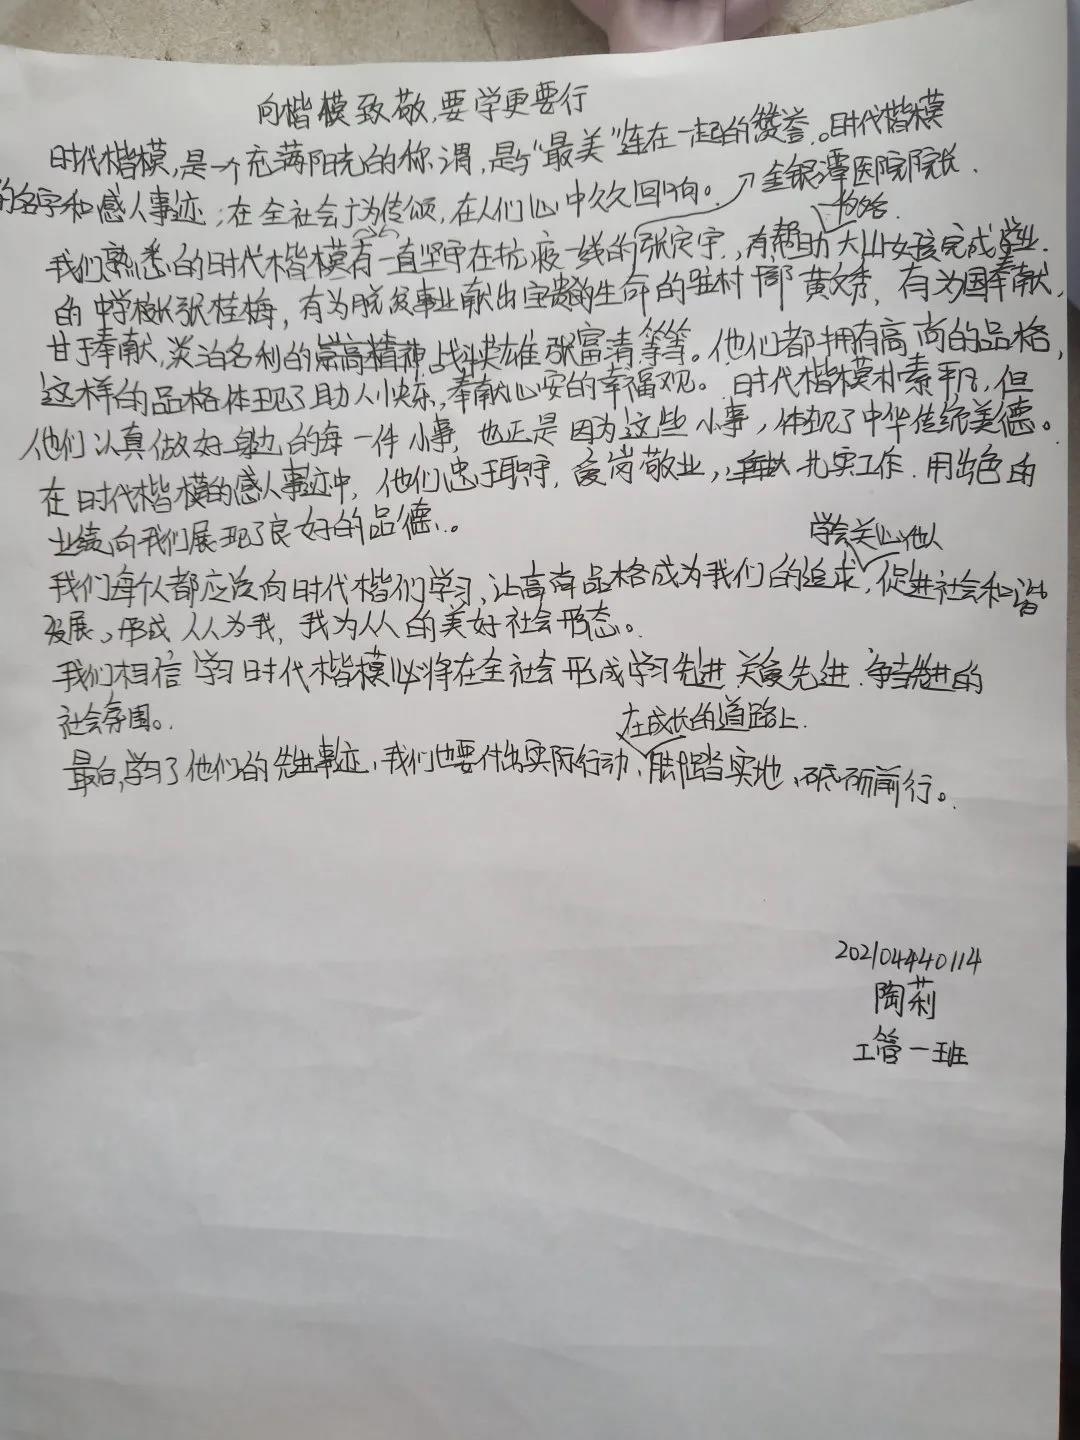 向楷模致敬,要学更要行
时代楷模,是一个充满阳光的称谓,是与“最美”连在一起的赞誉。时代楷模
的名字和感人事迹,在全社会广为传颂,在人们心中久久回响。
金银潭医院院长.
我们熟悉的时代楷模有一直坚守在抗疫一线的张定宇,有帮助大山女孩完成学业.
的中学校长张桂梅,有为脱贫事业献出宝贵的生命的驻村干部黄文秀,有为国奉献,
甘于奉献,淡泊名利的崇高精神战斗英雄张富清等等。他们都拥有高尚的品格,
这样的品格体现了助人心快乐,奉献心安的幸福观。时代楷模朴素平凡,但
他们认真做好身边的每一件小事,也正是因为这些小事,体现了中华传统美德。
在时代楷模的感人事迹中,他们忠于职守,爱岗敬业,扎实工作.用出色的
业绩向我们展现了良好的品德。
学会关心他人
我们每个人都应该向时代楷们学习,让高尚品格成为我们的追求,促进社会和谐
发展,形成人人为我,我为人人的美好社会形态。
我们相信学习时代楷模必将在全社会形成学习先进.关爱先进.争当先进的
社会氛围。
在成长的道路上.
最后,学习了他们的先进事迹,我们也要付出实际行动、脚踏实地,砥砺前行。
202104440114
陶莉
工管一班